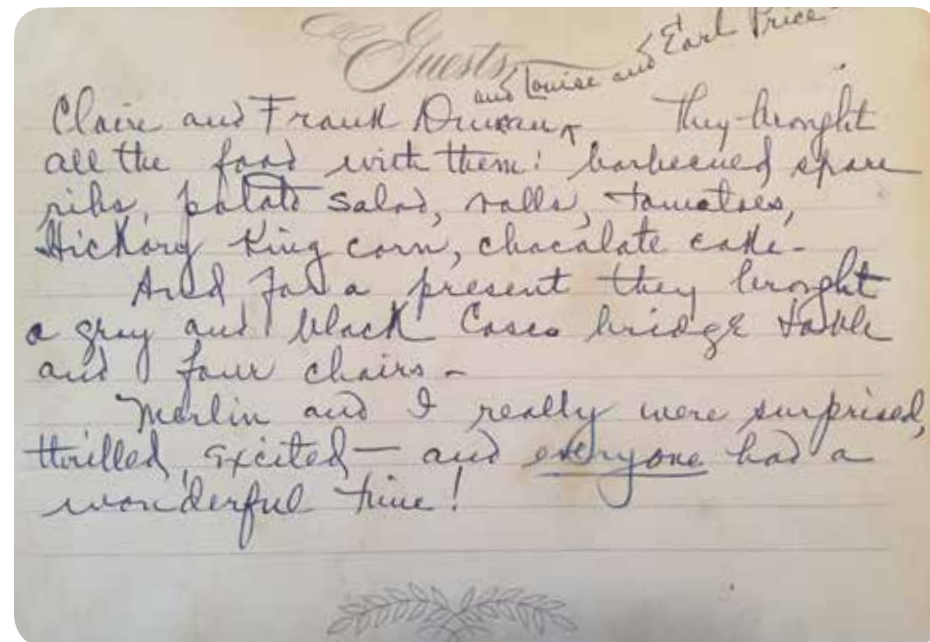 Guests
and Louise and Earl Price
Claire and Frank Duncan They brought
all the food with them: barbecued spare
ribs, potato salad, rolls, tomatoes,
Hickory King corn, chocolate cake-
And for a present they brought
a gray and black Cosco bridge table
and four chairs-
Merlin and I really were surprised,
thrilled, excited— and everyone had a
wonderful time!